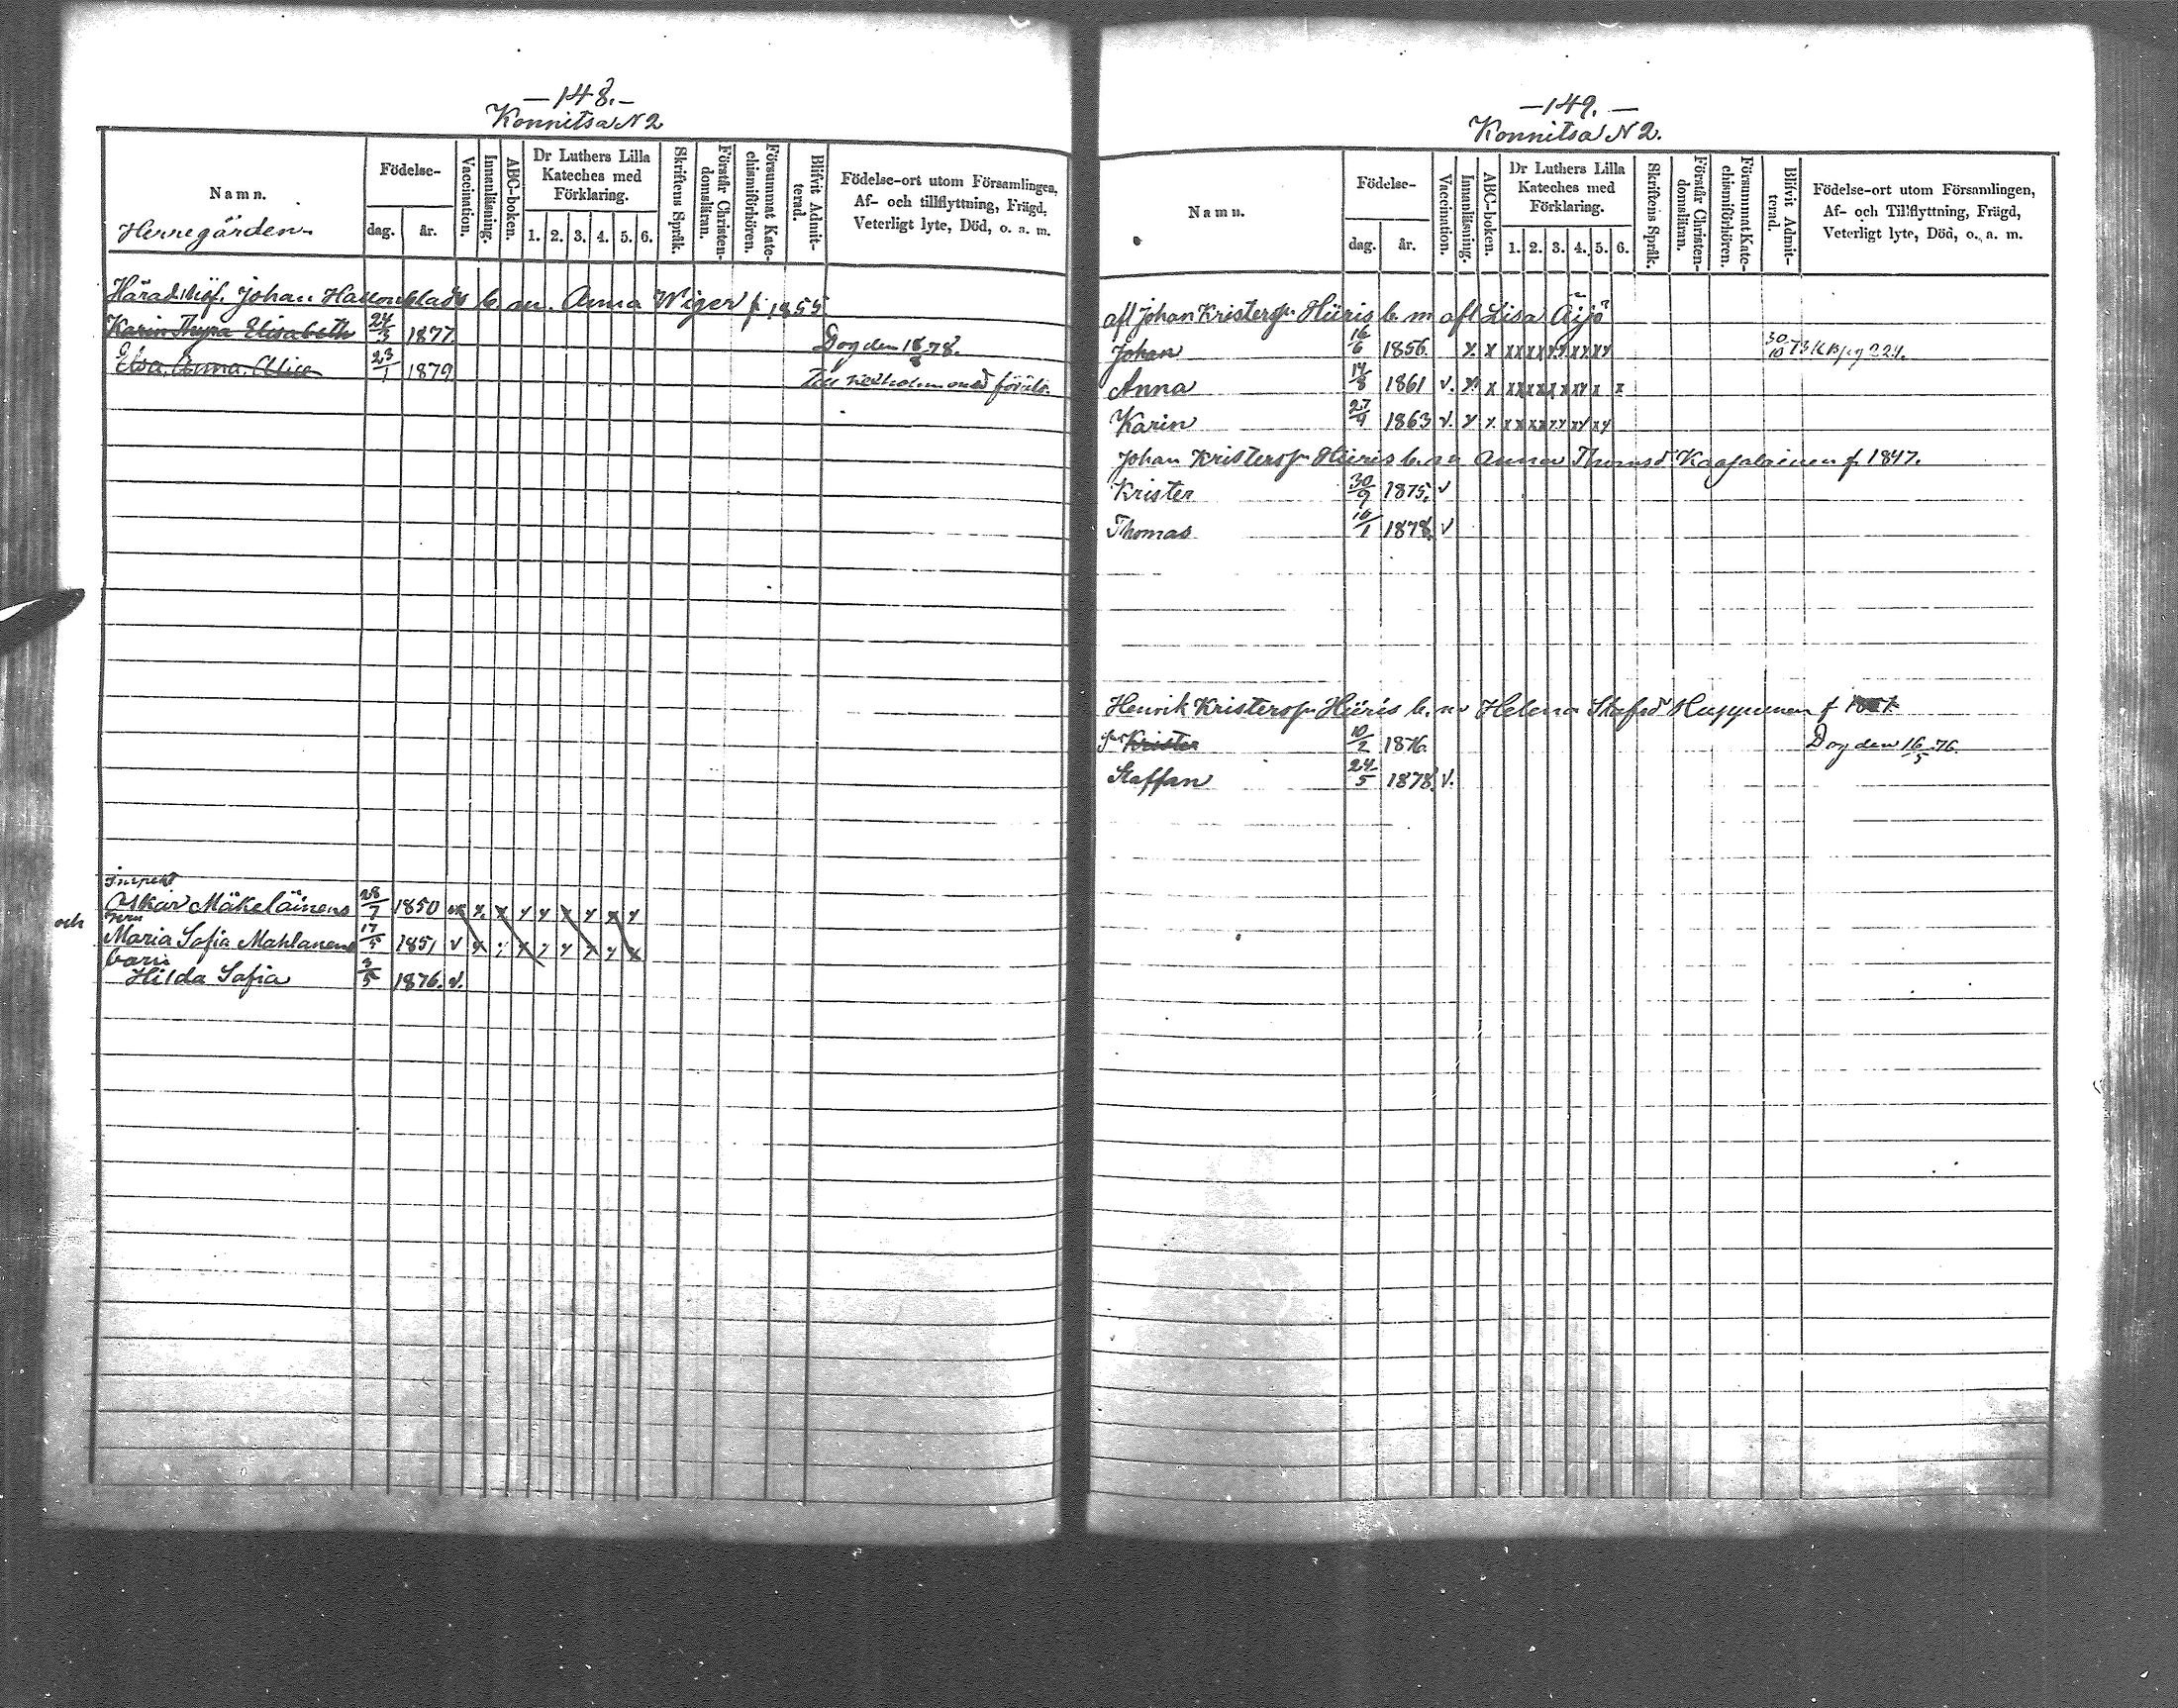 —148.—
Konnitsa N 2
Namn.
Födelse-
dag.
år.
Vaccination.
Innanläsning.
ABC-boken.
Dr Luthers Lilla
Kateches med
Förklaring.
1. 2. 3. 4. 5. 6.
Skriftens Språk.
Förstår Christen-
domsläran.
Försummat Kate-
chismiförhören.
Blifvit Admit-
terad.
Födelse-ort utom Församlingen,
Af- och tillflyttning, Frägd,
Veterligt lyte, Död, o. a. m.
Herregården
Häradshöf. Johan Hallonblads b. m. Anna Wiger f. 1855.
Karin Thyra Elisabeth 24/3 1877. Dog den 18/8 78.
Elsa Anna Alice 23/1 1879 Till med föräld.
inspekt
Oskar Mäkeläinens 28/7 1850 x x x x x x x x
och
Maria Sofia Mahlanens 17/5 1851 v x x x x x x x x
barn
Hilda Sofia 3/5 1876. v.
—149.—
Konnitsa N 2.
Namn.
Födelse-
dag.
år.
Vaccination.
Innanläsning.
ABC-boken.
Dr Luthers Lilla
Kateches med
Förklaring.
1. 2. 3. 4. 5. 6.
Skriftens Språk.
Förstår Christen-
domsläran.
Försummat Kate-
chismiförhören.
Blifvit Admit-
terad.
Födelse-ort utom Församlingen,
Af- och Tillflyttning, Frägd,
Veterligt lyte, Död, o. a. m.
afl Johan Kristersn Hüris b. m afl Lisa Äijö
Johan 16/6 1856. x x xx xx xx xx xx 30/10 73 KB pg 224.
Anna 14/8 1861 v. x x xx xx xx xx x x
Karin 27/4 1863 v. x x xx xx xx xx xx
Johan Kristersn Hüris b. m Anna Thomsd Kaapalainen f. 1847.
Krister 30/9 1875. v
Thomas 10/1 1878. v
Henrik Kristersn Hüris b. m Helena Stafsd Huppunen f
Krister 10/2 1876. Dog den 16/5 76.
Staffan 24/5 1878. v.